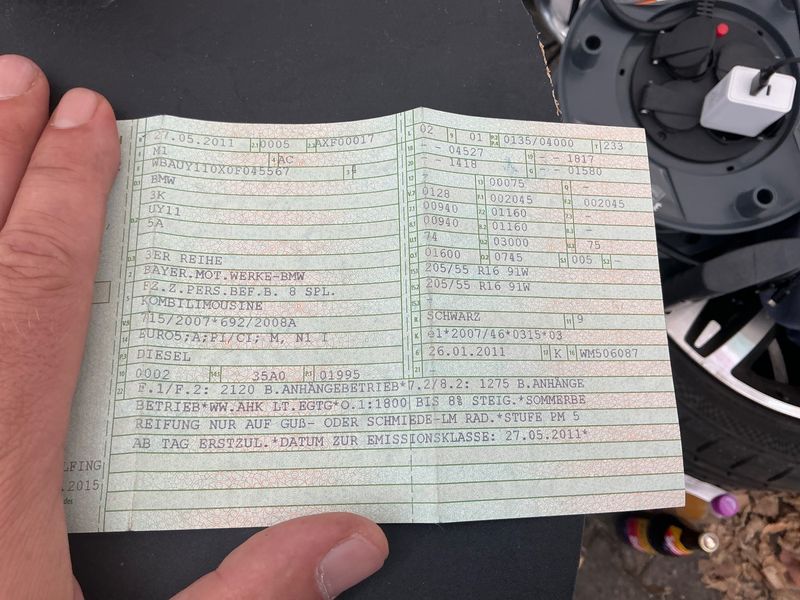 27.05.2011 0005 AXF00017
M1 AC
WBAUY110X0F045567
BMW
3K
UY11
5A
3ER REIHE
BAYER.MOT.WERKE-BMW
FZ.Z.PERS.BEF.B. 8 SPL.
KOMBILIMOUSINE
715/2007*692/2008A
EURO5;A;PI/CI; M, N1 I
DIESEL
0002 35A0 01995
02 01 0135/04000 233
- - 04527 - - 1817
- - 1418 - - 01580
- 00075 -
0128 002045 002045
00940 01160 -
00940 01160 -
74 03000 75
01600 0745 005 -
205/55 R16 91W
205/55 R16 91W
-
SCHWARZ 9
e1*2007/46*0315*03
26.01.2011 K WM506087
-
F.1/F.2: 2120 B.ANHÄNGEBETRIEB*7.2/8.2: 1275 B.ANHÄNGE
BETRIEB*WW.AHK LT.EGTG*O.1:1800 BIS 8% STEIG.*SOMMERBE
REIFUNG NUR AUF GUß- ODER SCHMIEDE-LM RAD.*STUFE PM 5
AB TAG ERSTZUL.*DATUM ZUR EMISSIONSKLASSE: 27.05.2011*
LFING
.2015
des